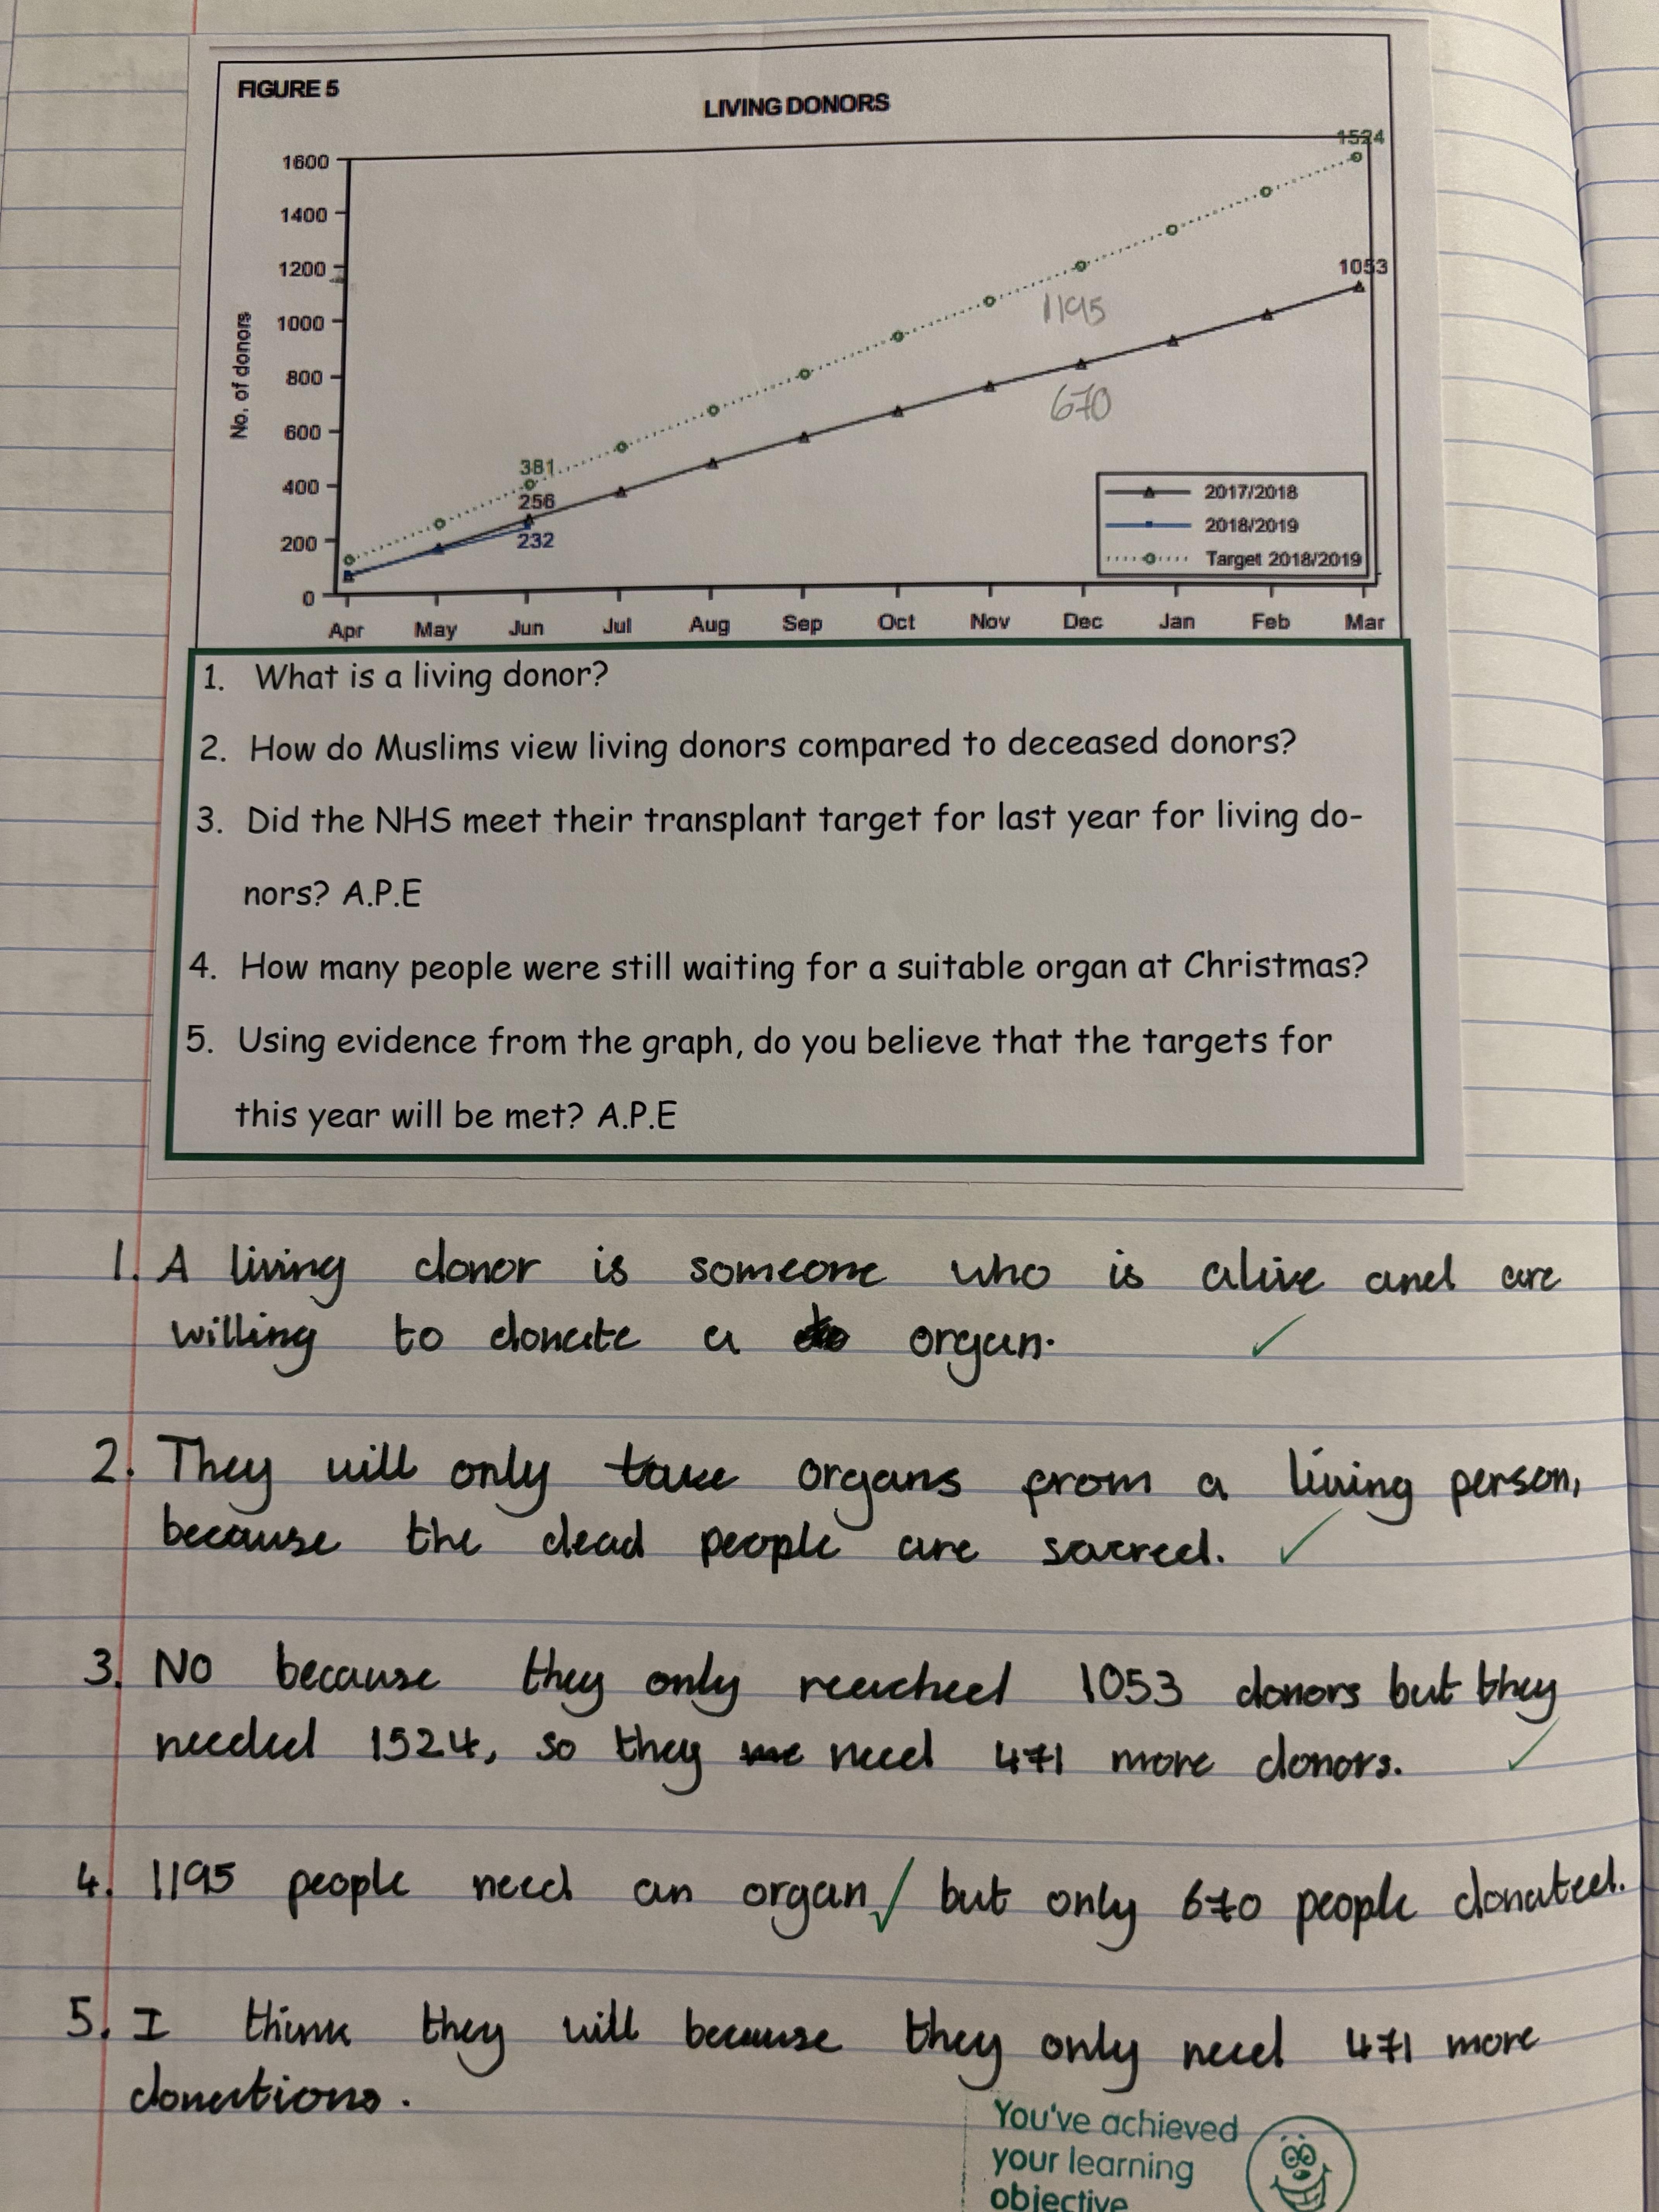 FIGURE 5
LIVING DONORS
1600
1400
1200
1000
800
600
400
200
0
No. of donors
1524
1053
1195
670
381
256
232
2017/2018
2018/2019
Target 2018/2019
Apr May Jun Jul Aug Sep Oct Nov Dec Jan Feb Mar
1. What is a living donor?
2. How do Muslims view living donors compared to deceased donors?
3. Did the NHS meet their transplant target for last year for living do-
nors? A.P.E
4. How many people were still waiting for a suitable organ at Christmas?
5. Using evidence from the graph, do you believe that the targets for
this year will be met? A.P.E
1. A living donor is someone who is alive and are
willing to donate a organ.
2. They will only take organs from a living person,
because the dead people are sacred.
3. No because they only reached 1053 donors but they
needed 1524, so they need 471 more donors.
4. 1195 people need an organ but only 670 people donated.
5. I think they will because they only need 471 more
donations.
You've achieved
your learning
objective